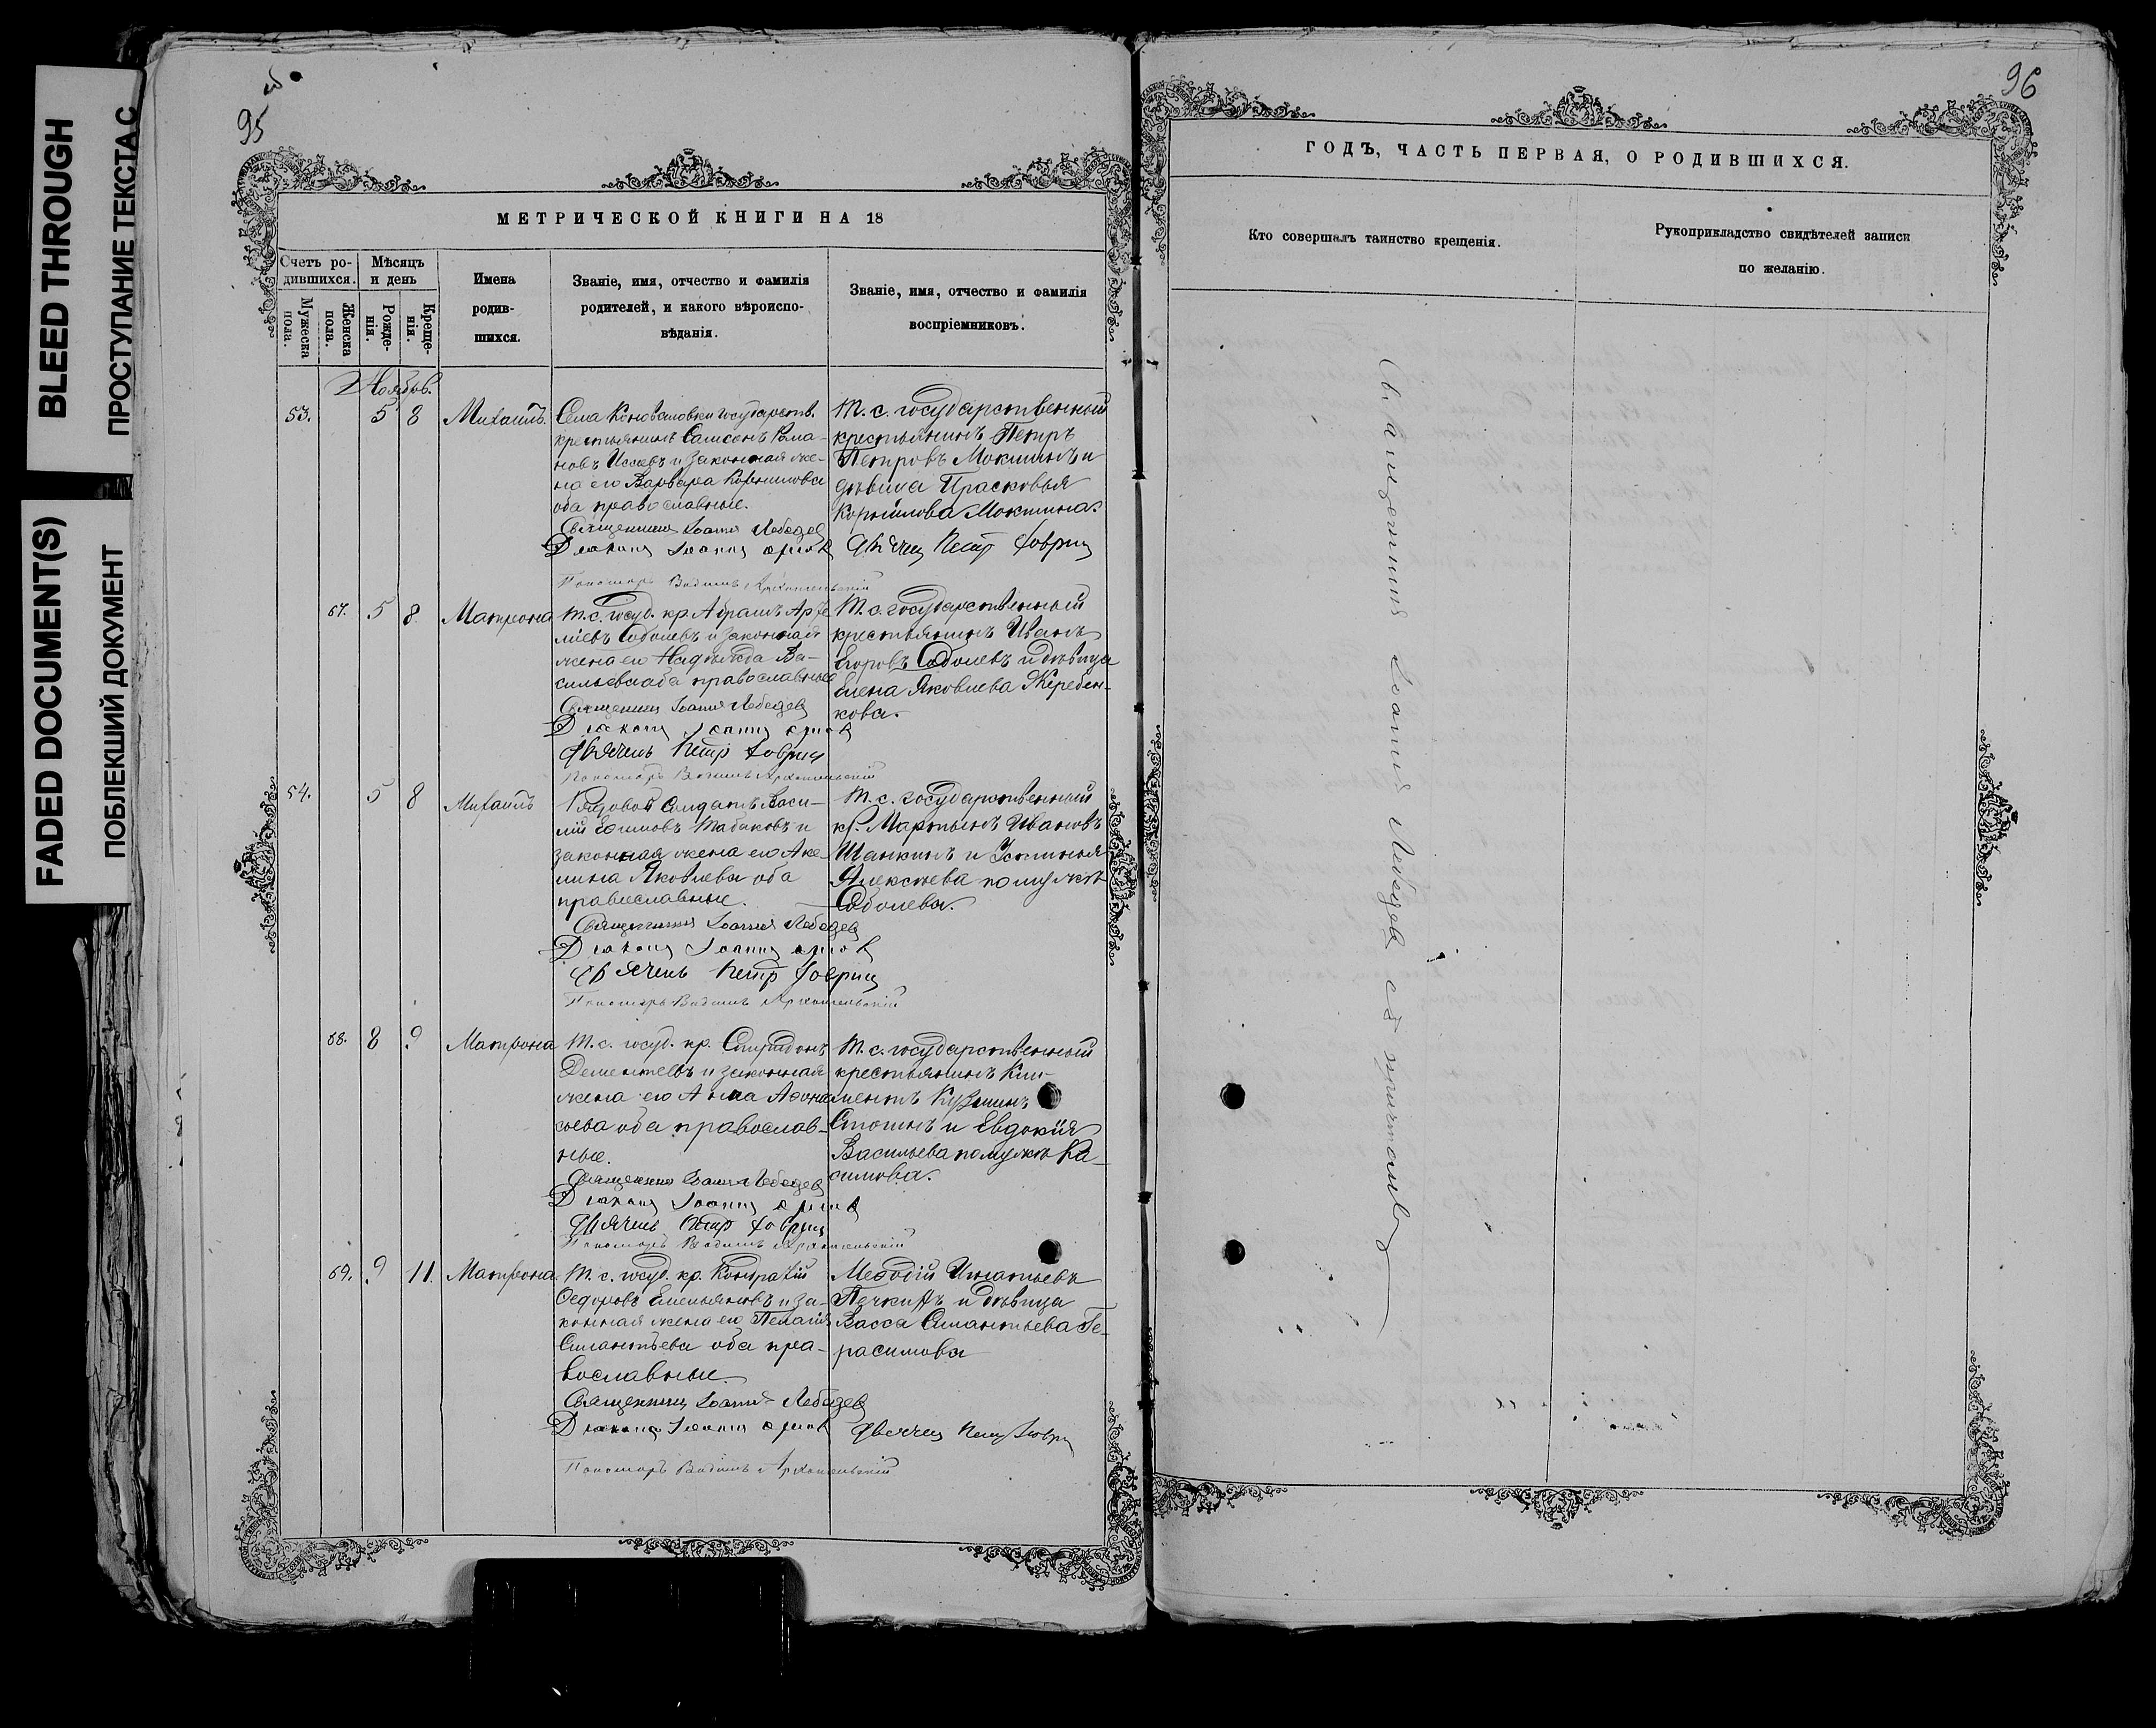 BLEED THROUGH
ПРОСТУПАНИЕ ТЕКСТА С
FADED DOCUMENT(S)
ПОБЛЕКШИЙ ДОКУМЕНТ
95
МЕТРИЧЕСКОЙ КНИГИ НА 18
Счетъ ро-
дившихся.
Мужеска
пола.
Женска
пола.
Мѣсяцъ
и день
Рожде-
нія.
Креще-
нія.
Имена
родив-
шихся.
Званіе, имя, отчество и фамилія
родителей, и какого вѣроиспо-
вѣданія.
Званіе, имя, отчество и фамилія
воспріемниковъ.
Ноябрь.
53. 5 8 Михаилъ.
Села Коноваловки государств.
крестьянинъ Самсонъ Рома-
новъ Исаевъ и законная же-
на его Варвара Корнилова
оба православные.
Священникъ Іоаннъ Лебедев
Діаконъ Іоаннъ
Пономарь Вадимъ Архангельскій
Т. с. государственный
крестьянинъ Петръ
Петровъ Мокшинъ и
дѣвица Прасковья
Корнилова Мокшина.
67. 5 8 Матрона
Т. с. госуд. кр. Абрамъ Арте
міевъ Соболевъ и законная
жена его Надежда Ва-
сильева оба православные
Священникъ Іоаннъ Лебедев
Діаконъ Іоаннъ
Пономарь Вадимъ Архангельскій
Т. с. государственный
крестьянинъ Иванъ
Егоровъ Соболевъ и дѣвица
Елена Яковлева Жеребен-
кова.
54. 5 8 Михаилъ
Рядовой солдатъ Васи-
лій Ефимовъ Табаковъ и
законная жена его Аке-
лина Яковлева оба
православные.
Священникъ Іоаннъ Лебедев
Діаконъ Іоаннъ
Пономарь Вадимъ Архангельскій
Т. с. государственный
кр. Мартынъ Ивановъ
Шанкинъ и Устинья
Алексѣева по мужѣ
Соболева.
68. 8 9 Матрона
Т. с. госуд. кр. Спиридонъ
Дементьевъ и законная
жена его Анна Афона
сьева оба православ-
ные.
Священникъ Іоаннъ Лебедев
Діаконъ Іоаннъ
Пономарь Вадимъ Архангельскій
Т. с. государственный
крестьянинъ Кли-
ментъ Кузминъ
и Евдокія
Васильева по мужѣ Ка-
симова.
69. 9 11. Матрона.
Т. с. госуд. кр. Кондратій
Ѳедоровъ Емельяновъ и за-
конная жена его Пелагія
Силантьева оба пра-
вославные.
Священникъ Іоаннъ Лебедев
Діаконъ Іоаннъ
Пономарь Вадимъ Архангельскій
Меѳодій Игнатьевъ
Печкинъ и дѣвица
Васса Силантьева Ге-
расимова
96
ГОДЪ, ЧАСТЬ ПЕРВАЯ, О РОДИВШИХСЯ.
Кто совершалъ таинство крещенія.
Рукоприкладство свидѣтелей записи
по желанію.
Священникъ Іоаннъ Лебедев съ причтомъ